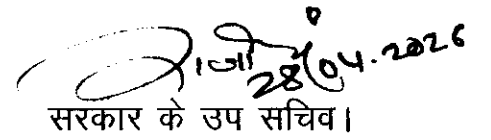 28/04.2026
सरकार के उप सचिव।